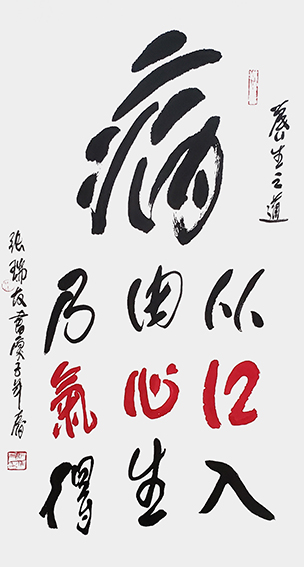 養生之道
病
从口入
由心生
乃氣得
张瑞友書庚子年